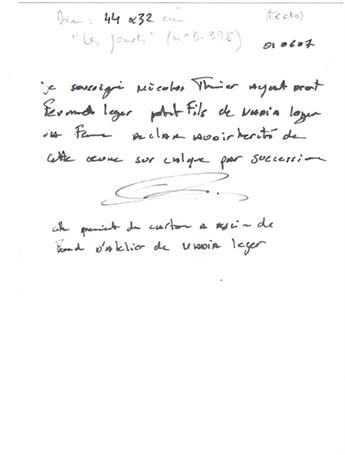 Dim: 44 x 32 cm (Recto)
"Les jouets" (n° D-398)
010607
je soussigné Nicolas Thinier Ayant droit
Fernand Leger petit Fils de NADIA leger
sa Femme declare avoir herité de
cette oeuvre sur calque par succession
elle provient du carton A dessin de
Fond d'Atelier de NADIA leger